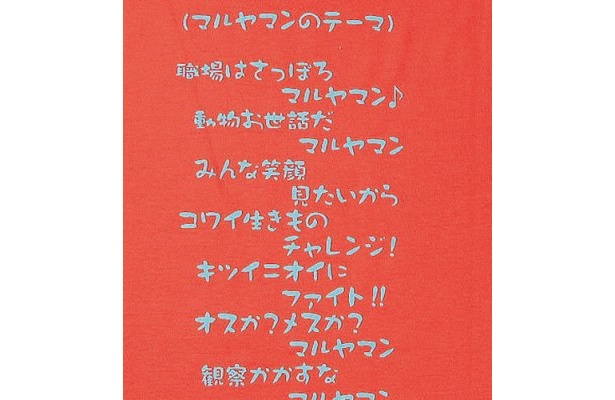 (マルヤマンのテーマ)
職場はさっぽろ
マルヤマン♪
動物お世話だ
マルヤマン
みんな笑顔
見たいから
コワイ生きもの
チャレンジ!
キツイニオイに
ファイト!!
オスか?メスか?
マルヤマン
観察かかすな
マルヤマン